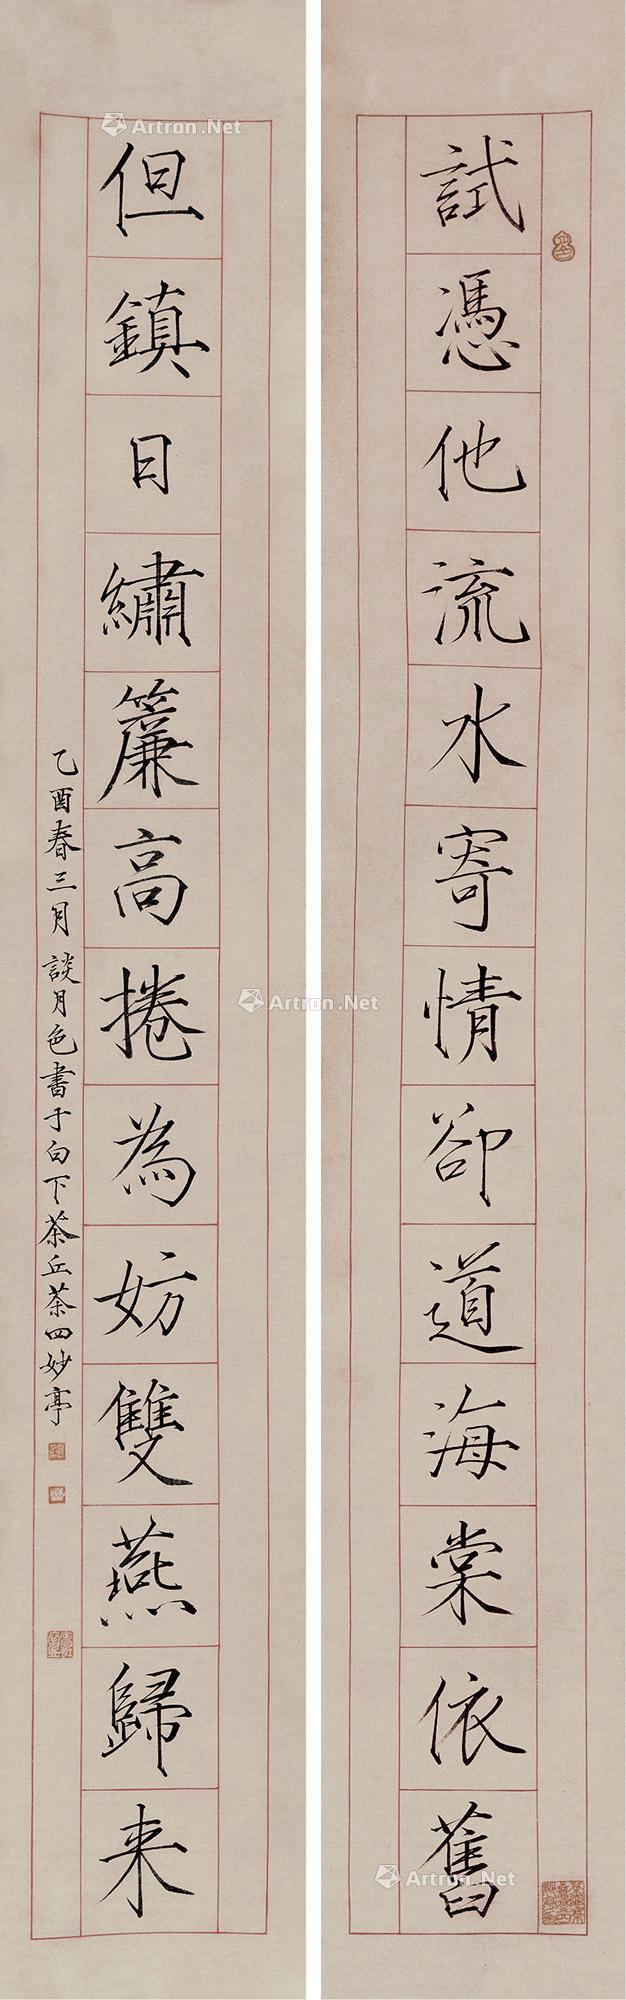 試憑他流水寄情卻道海棠依舊
但鎮日繡簾高捲為妨雙燕歸来
乙酉春三月談月色書于白下茶丘茶四妙亭
Artron.Net
Artron.Net
Artron.Net